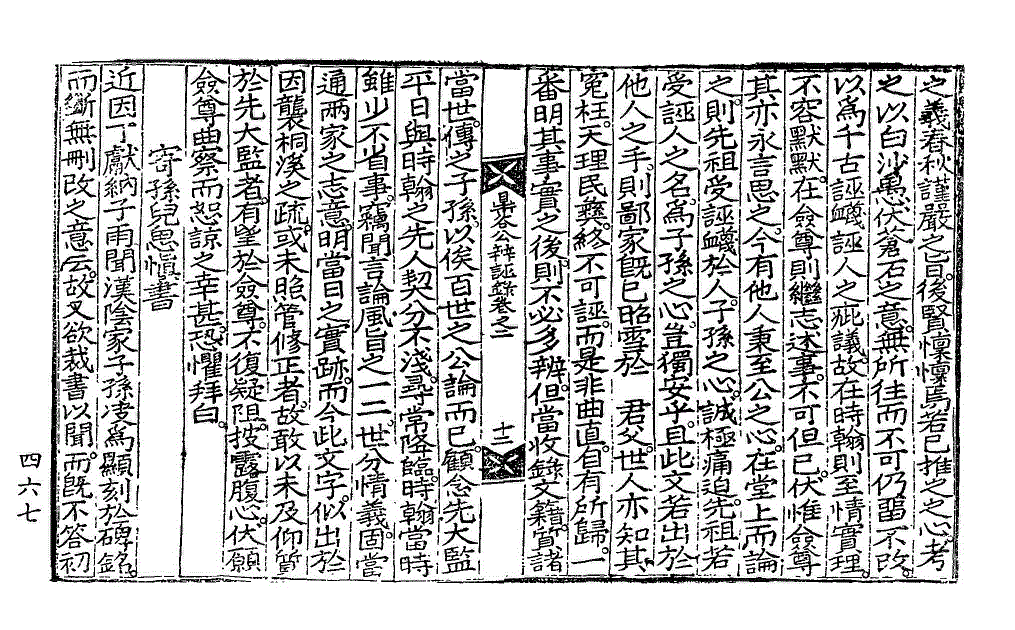 之義春秋謹嚴之旨後賢懍懍焉若已推之之心考
之以白沙愚伏蒼石之意無所往而不可仍畱不改
以爲千古誣衊誣人之疵議故在時翰則至情實理
不容默默在僉尊則繼志述事不可但已伏惟僉尊
其亦永言思之今有他人秉至公之心在堂上而論
之則先祖受誣衊於人子孫之心誠極痛迫先祖若
受誣人之名爲子孫之心豈獨安乎且此文若出於
他人之手則鄙家旣已昭雪於 君父世人亦知其
冤枉天理民彝終不可誣而是非曲直自有所歸一
番明其事實之後則不必多辨但當收錄文籍質諸
谷辨誣錄卷之二 十二
當世傳之子孫以俟百世之公論而已顧念先大監
平日與時翰之先人契分不淺尋常降臨時翰當時
雖少不省事竊聞言論風旨之一二世分情義固當
通兩家之志意明當日之實跡而今此文字似出於
因襲桐溪之疏或未照管修正者故敢以未及仰質
於先大監者有望於僉尊不復疑阻披露腹心伏願
僉尊曲察而恕諒之幸甚恐懼拜白
寄孫兒思愼書
近因丁獻納子雨聞漢陰家子孫淒爲顯刻於碑銘
而斷無刪改之意云故又欲裁書以聞而旣不答初
四六七